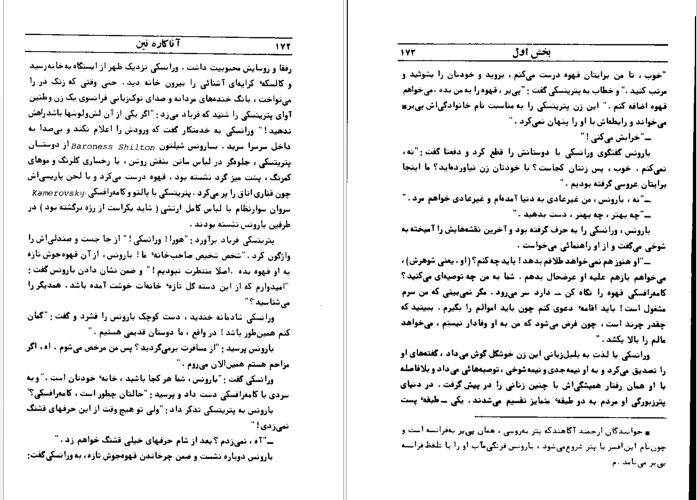 آناکاره نین
۱۷۲
رفقا و روسایش محبوبیت داشت . ورانسکی نزدیک ظهر از ایستگاه به‌خانه‌رسید
و کالسکهٔ کرایه‌ای آشنائی را بیرون خانه دید. حتی وقتی که زنگ در را
می‌نواخت ، بانگ خنده‌های مردانه و صدای نوک‌زبانی فرانسوی یک زن وطنین
آوای پتریتسکی را شنید که فریاد می‌زد : "اگر یکی از آن لش‌ولوشها باشدراهش
ندهید ! " ورانسکی به خدمتکار گفت که ورودش را اعلام نکند و بی‌صدا به
داخل سرسرا سرید . بارونس شیلتون Baroness Shilton از دوستان
پتریتسکی ، جلوه‌گر در لباس ساتن بنفش روشن ، با رخساری گلرنگ و موهای
کمرنگ ، پشت میز گرد نشسته بود ، قهوه درست می‌کرد و با لحن پاریسی‌اش
چون قناری اتاق را پر می‌کرد . پتریتسکی با پالتو و کامه‌رافسکی Kamerovsky.
سروان سوارنظام با لباس کامل ارتشی ( شاید یکراست از رژه برگشته بود ) در
طرفین بارونس نشسته بودند .
پتریتسکی فریاد برآورد : "هورا ! ورانسکی ! " از جا جست و صندلی‌اش را
واژگون کرد . "شخص شخیص صاحب‌خانهٔ ما ! بارونس ، از آن قهوه‌جوش تازه
به او قهوه بده . اصلا منتظرت نبودیم ! " و ضمن نشان دادن بارونس گفت :
"امیدوارم که از این دسته گل تازهٔ خانه‌ات خوشت آمده باشد . همدیگر را
می‌شناسید ؟"
ورانسکی شادمانه خندید ، دست کوچک بارونس را فشرد و گفت : "گمان
کنم همین‌طور باشد ! در واقع ، ما دوستان قدیمی هستیم . "
بارونس پرسید : "از مسافرت برمی‌گردید ؟ پس من مرخص می‌شوم . اه ، اگر
مزاحم هستم همین‌الان می‌روم . "
ورانسکی گفت : "بارونس ، شما هر کجا باشید ، خانهٔ خودتان است . "و به
سردی با کامه‌رافسکی دست داد و پرسید : "حالتان چطور است ، کامه‌رافسکی؟"
بارونس به پتریتسکی تذکر داد : "ولی تو هیچ وقت از این حرفهای قشنگ
نمی‌زدی ! "
ــ"آه ، نمی‌زدم ؟ بعد از شام حرفهای خیلی قشنگ خواهم زد . "
بارونس دوباره نشست و ضمن چرخاندن قهوه‌جوش تازه ، به ورانسکی‌گفت:
بخش اول
۱۷۳
"خوب ، تا من برایتان قهوه درست می‌کنم ، بروید و خودتان را بشوئید و
مرتب کنید . " و خطاب به پتریتسکی گفت : "پی‌یر ، قهوه را به من بده ، می‌خواهم
قهوه اضافه کنم . " این زن پتریتسکی را به مناسبت نام خانوادگی‌اش پی‌یر*
می‌خواند و رابطه‌اش با او را پنهان نمی‌کرد . "
ــ"خرابش می‌کنی ! "
بارونس گفتگوی ورانسکی با دوستانش را قطع کرد و دفعتا گفت : "نه ،
نمی‌کنم . خوب ، پس زنتان کجاست ؟ با خودتان زن نیاورده‌اید؟ ما اینجا
برایتان عروسی گرفته بودیم . "
ــ"نه ، بارونس ، من غیرعادی به دنیا آمده‌ام و غیرعادی خواهم مرد . "
ــ"چه بهتر ، چه بهتر ، دست بدهید . "
بارونس ، ورانسکی را به حرف گرفته بود و آخرین نقشه‌هایش را آمیخته به
شوخی می‌گفت و از او راهنمائی می‌خواست .
ــ"او هنوز هم نمی‌خواهد طلاقم بدهد ! باید چه‌کنم؟ (او ، یعنی شوهرش) ،
می‌خواهم بازهم علیه او عرضحال بدهم . شما به من چه توصیه‌ای می‌کنید ؟
کامه‌رافسکی قهوه را نگاه کن ــ دارد سر می‌رود . مگر نمی‌بینی که من سرم
مشغول است ! باید اقامهٔ دعوی کنم چون باید اموالم را بگیرم . ببینید که
چقدر چرند است ، چون فرض می‌شود که من به او وفادار نیستم ، می‌خواهد
مالم را بالا بکشد . "
ورانسکی با لذت به بلبل‌زبانی این زن خوشگل گوش می‌داد ، گفته‌های او
را تصدیق می‌کرد و به او نیمه‌جدی و نیمه‌شوخی ، توصیه‌هائی می‌داد و بلافاصله
با او همان رفتار همیشگی‌اش با چنین زنانی را در پیش گرفت . در دنیای
پترزبورگی او مردم به دو طبقهٔ متمایز تقسیم می‌شدند . یکی ــ طبقهٔ پست
* خوانندگان ارجمند آگاهندکه پتر به‌روسی ، همان پی‌یر به‌فرانسه است و
چون‌نام این‌افسر با پتر شروع‌می‌شود ، بارونس فرنگی‌مآب او را با تلفظ فرانسه
پی‌یر می‌نامد . م